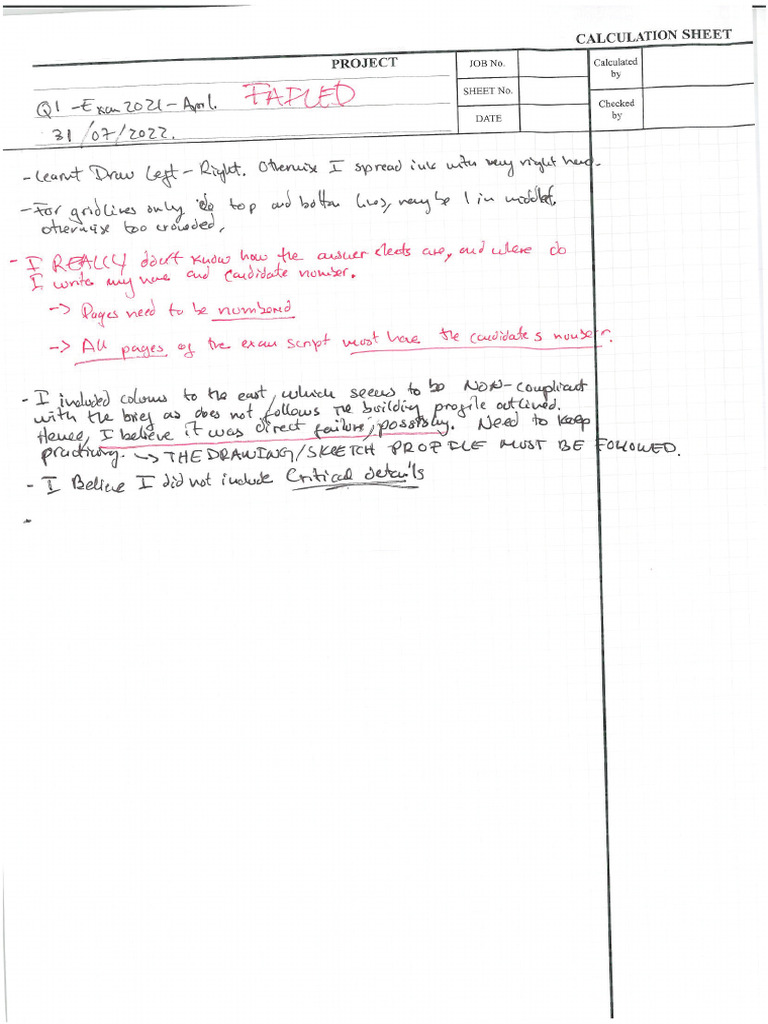 CALCULATION SHEET
PROJECT
JOB No.
Calculated by
SHEET No.
Checked by
DATE
Q1 - Exam 2021 - April. FAILED
31/07/2022.
- Learnt Draw Left - Right. Otherwise I spread ink with my right hand.
- For gridlines only do top and bottom lines, maybe 1 in middle.
otherwise too crowded.
- I REALLY don't know how the answer sheets are, and where do
I write my name and candidate number.
-> Pages need to be numbered
-> All pages of the exam script must have the candidate's number.
- I included columns to the east, which seems to be NON-compliant
with the brief as does not follows the building profile outlined.
Hence, I believe it was direct failure, possibly. Need to keep
practicing. -> THE DRAWING/SKETCH PROFILE MUST BE FOLLOWED.
- I Believe I did not include Critical details
-